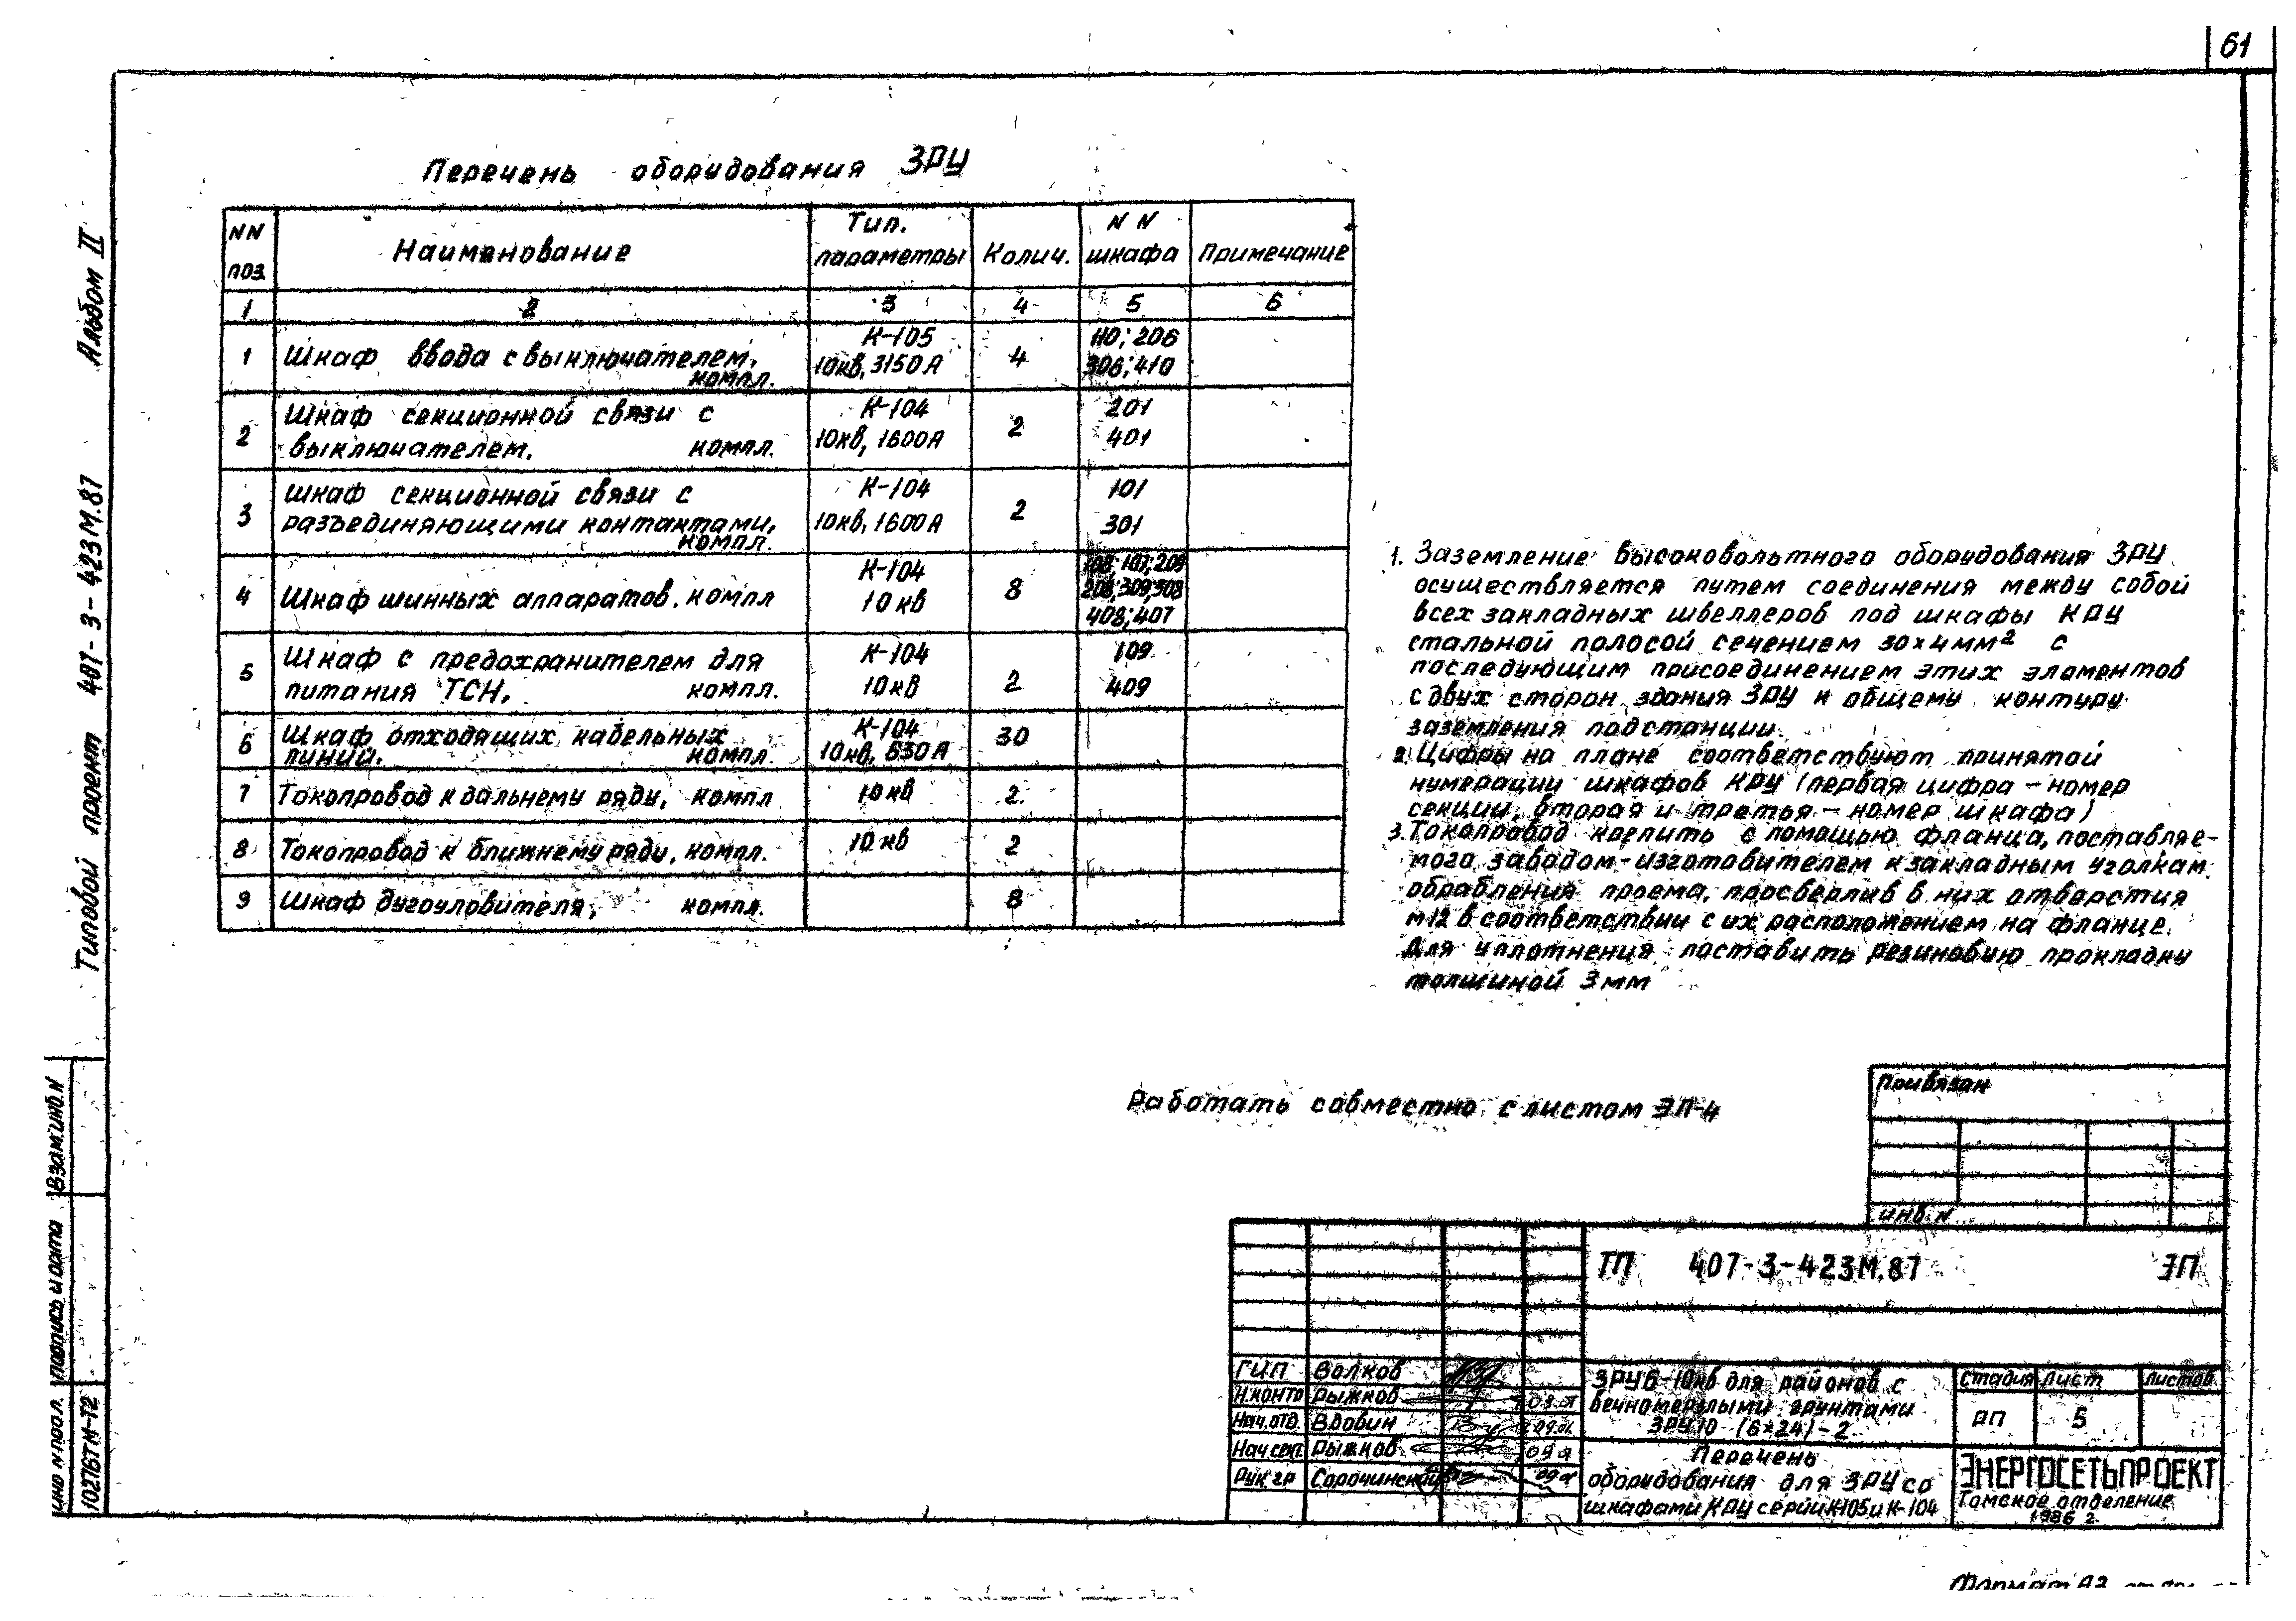 61
Перечень оборудования ЗРУ
NN поз. | Наименование | Тип. параметры | Колич. | NN шкафа | Примечание
1 | 2 | 3 | 4 | 5 | 6
1 | Шкаф ввода с выключателем, компл. | К-105 10кв, 3150А | 4 | 110; 206 306; 410
2 | Шкаф секционной связи с выключателем, компл. | К-104 10кв, 1600А | 2 | 201 401
3 | Шкаф секционной связи с разъединяющими контактами, компл. | К-104 10кв, 1600А | 2 | 101 301
4 | Шкаф шинных аппаратов, компл | К-104 10кв | 8 | 108; 107; 209 208; 309; 308 408; 407
5 | Шкаф с предохранителем для питания ТСН, компл. | К-104 10кв | 2 | 109 409
6 | Шкаф отходящих кабельных линий. компл. | К-104 10кв, 630А | 30
7 | Токопровод к дальнему ряду, компл | 10кв | 2
8 | Токопровод к ближнему ряду, компл. | 10кв | 2
9 | Шкаф дугоуловителя, компл. | 8
1. Заземление высоковольтного оборудования ЗРУ
осуществляется путем соединения между собой
всех закладных швеллеров под шкафы КРУ
стальной полосой сечением 30×4мм² с
последующим присоединением этих элементов
с двух сторон здания ЗРУ к общему контуру
заземления подстанции.
2. Цифры на плане соответствуют принятой
нумерации шкафов КРУ (первая цифра – номер
секции, вторая и третья – номер шкафа)
3. Токопровод крепить с помощью фланца, поставляе-
мого заводом-изготовителем к закладным уголкам
обрабления проема, просверлив в них отверстия
м12 в соответствии с их расположением на фланце.
Для уплотнения поставить резиновую прокладку
толщиной 3мм
Работать совместно с листом ЭП-4
Привязан
инв. N
ТП 407-3-423М.87 ЭП
ГИП Волков
Н.контр Рыжков
Нач.отд. Вдовин
Нач.сект. Рыжков
Рук. гр Сорочинский
ЗРУ 6-10кв для районов с
вечномерзлыми грунтами
ЗРУ10 (6×24)-2
Стадия Лист Листов
РП 5
Перечень
оборудования для ЗРУ со
шкафами КРУ серии К-105 и К-104
ЭНЕРГОСЕТЬПРОЕКТ
Томское отделение
1986 г.
Формат А3
Типовой проект 407-3-423М.87 Альбом II
Взам.инв.N
Подпись и дата
Инв N подл.
10276ТМ-Т2